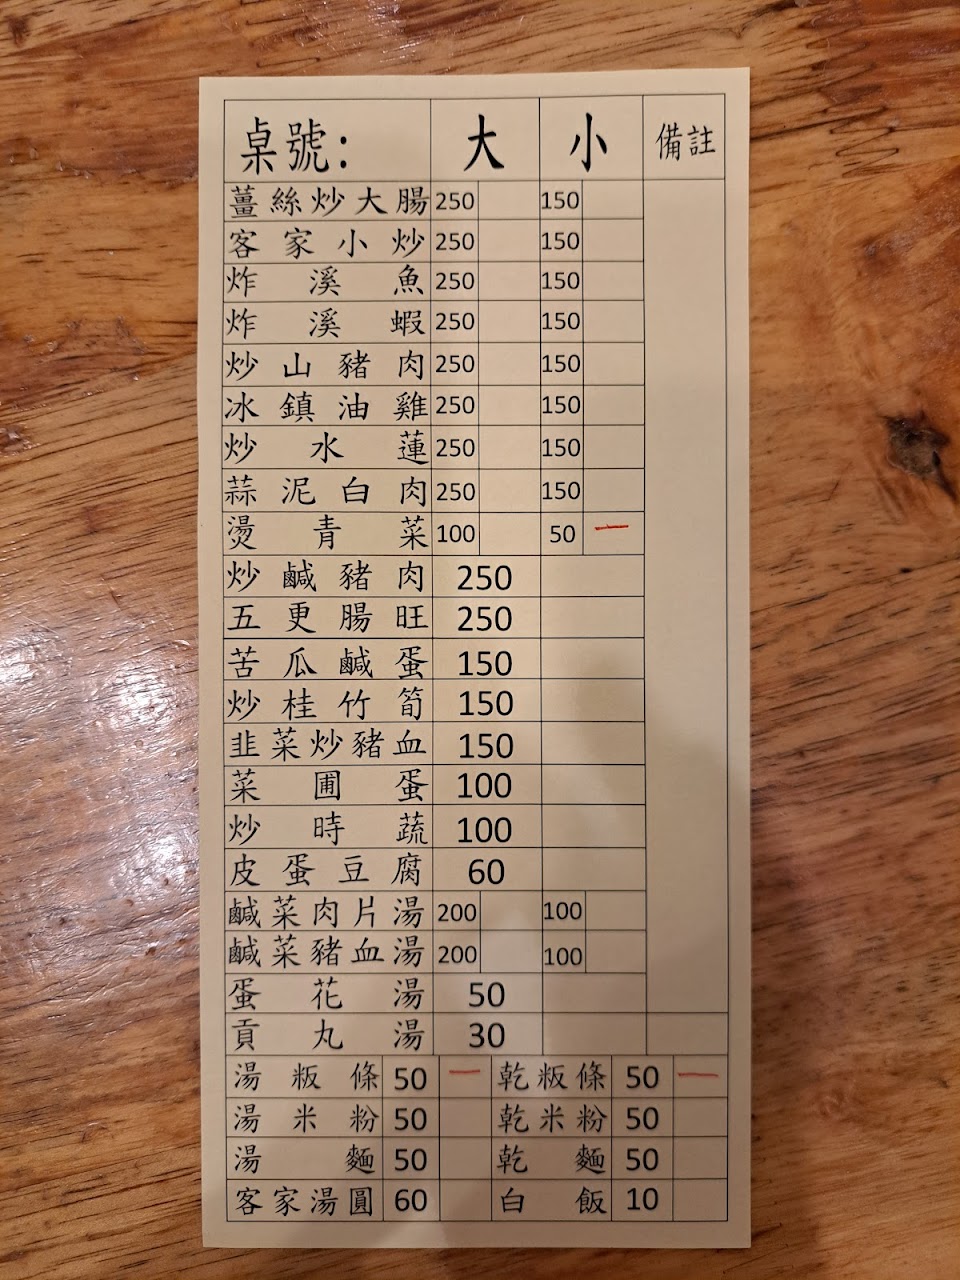 桌號: 大 小 備註
薑絲炒大腸 250 150
客家小炒 250 150
炸溪魚 250 150
炸溪蝦 250 150
炒山豬肉 250 150
冰鎮油雞 250 150
炒水蓮 250 150
蒜泥白肉 250 150
燙青菜 100 50 一
炒鹹豬肉 250
五更腸旺 250
苦瓜鹹蛋 150
炒桂竹筍 150
韭菜炒豬血 150
菜圃蛋 100
炒時蔬 100
皮蛋豆腐 60
鹹菜肉片湯 200 100
鹹菜豬血湯 200 100
蛋花湯 50
貢丸湯 30
湯粄條 50 一 乾粄條 50 一
湯米粉 50 乾米粉 50
湯麵 50 乾麵 50
客家湯圓 60 白飯 10